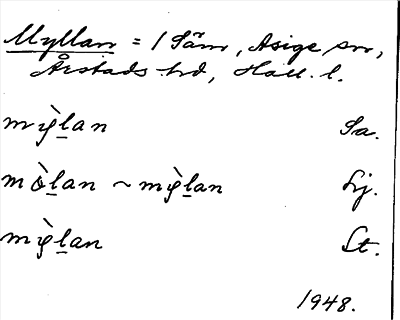 Myllan = 1 Säm, Asige sn,
Årstads hd, Hall. l.
mỳlan Sa.
mòlan ~ mỳlan Lj.
mỳlan St.
1948.